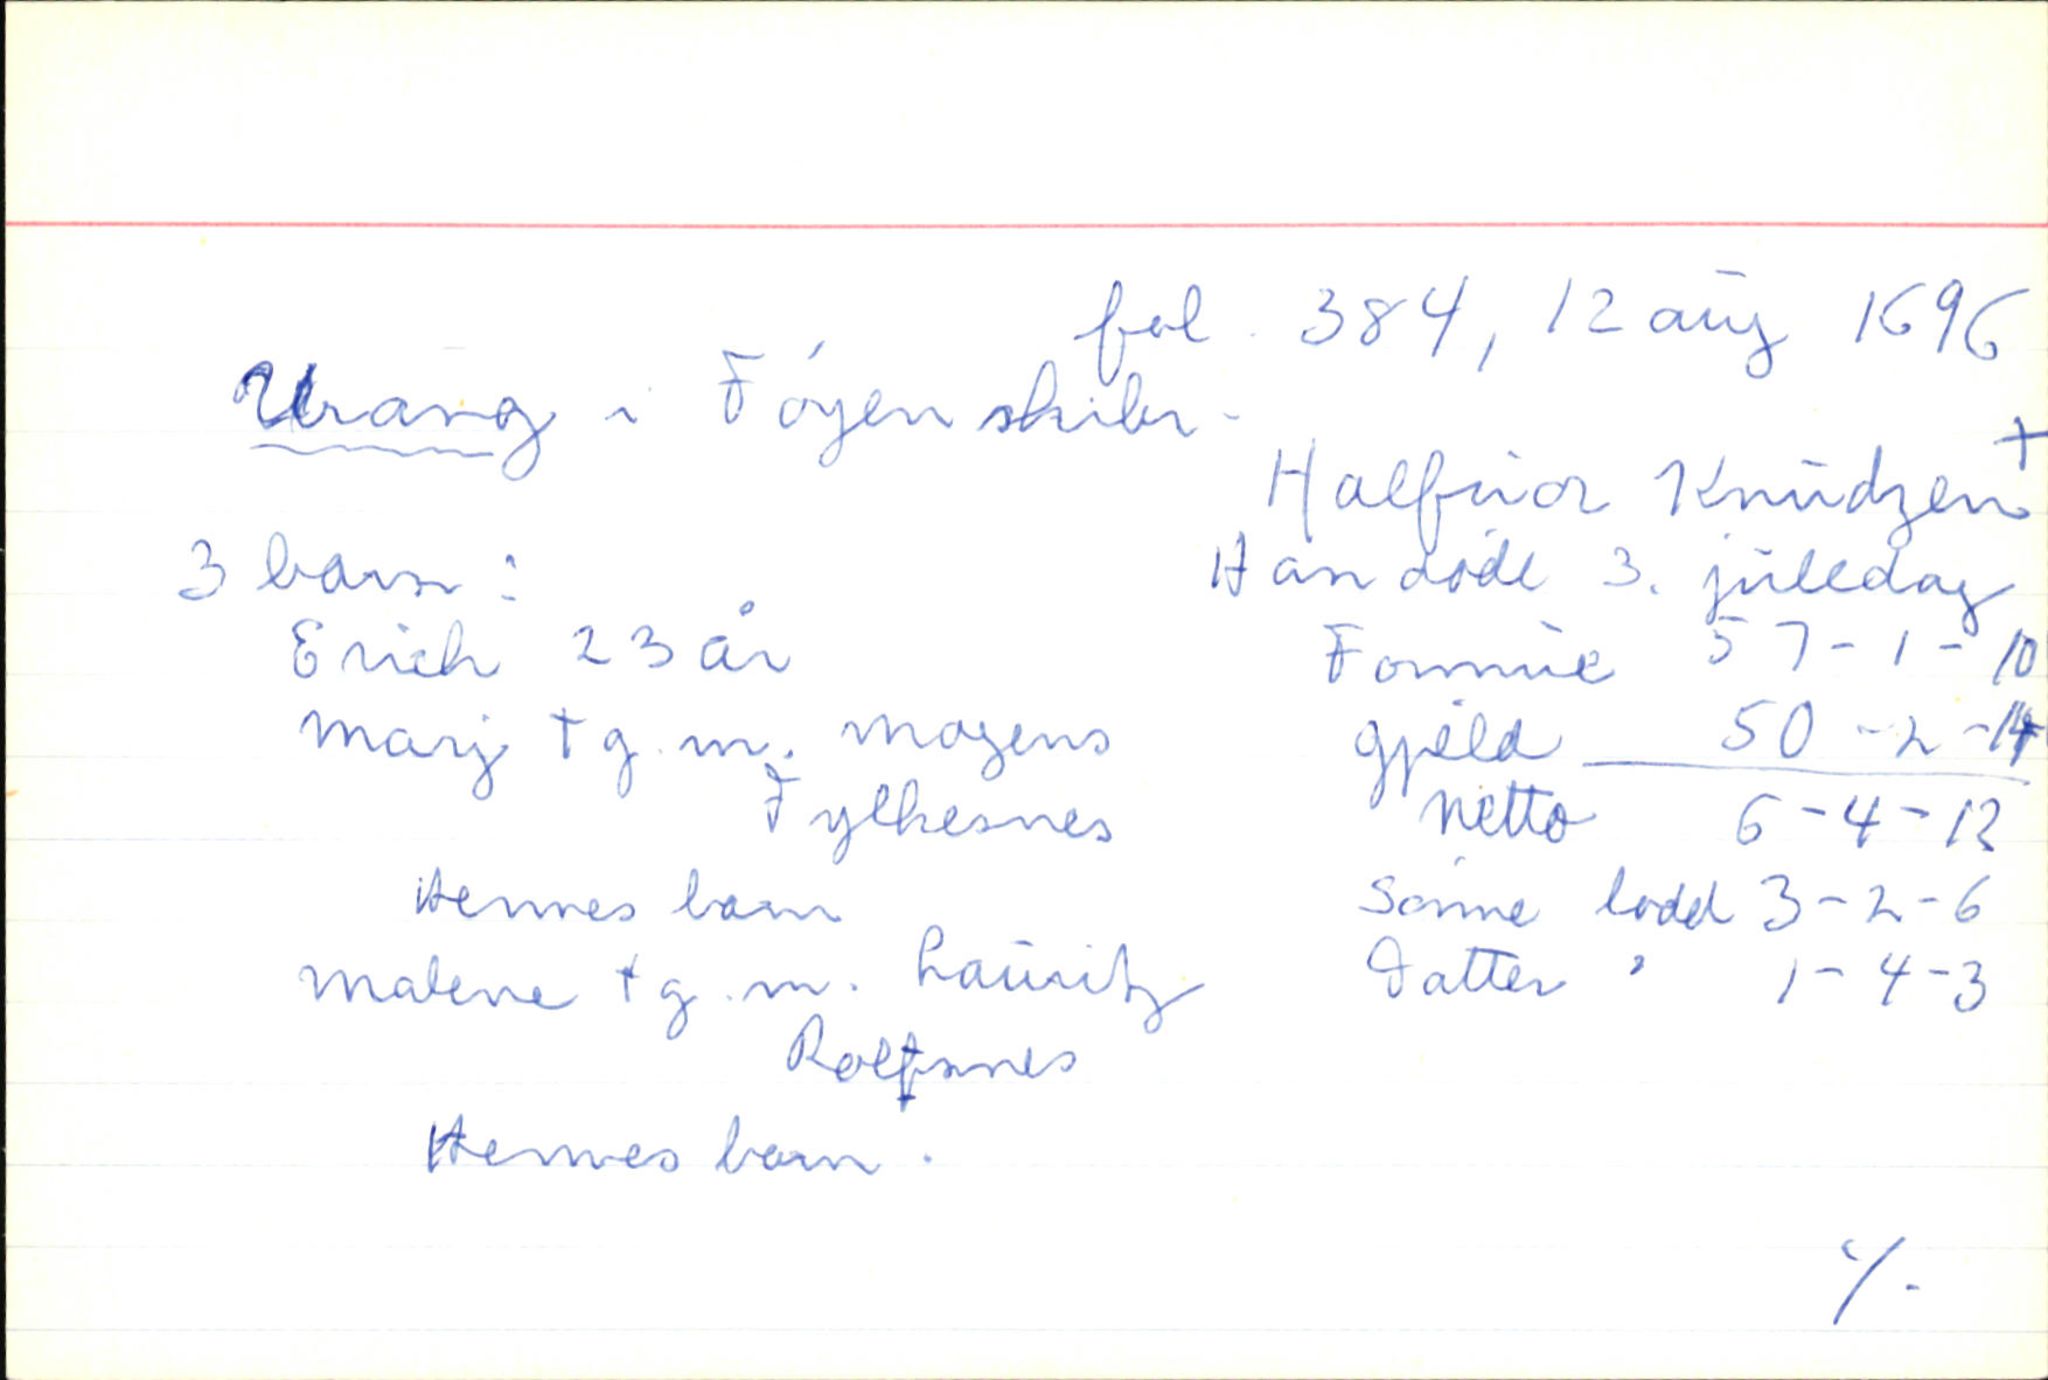 fol. 384, 12 aug 1696
Urang i Føyen skibr.
Halfuor Knudzen +
3 barn:
Han døde 3. juledag
Erich 23 år
Formue 57-1-10
Marj + g.m. Mogens
Fylkesnes
Gjeld 50-2-14
Netto 6-4-12
Hennes barn
Sønne lodd 3-2-6
Malene + g.m. Lauritz
Rolfsnes
Datter " 1-4-3
Hennes barn.
·/.